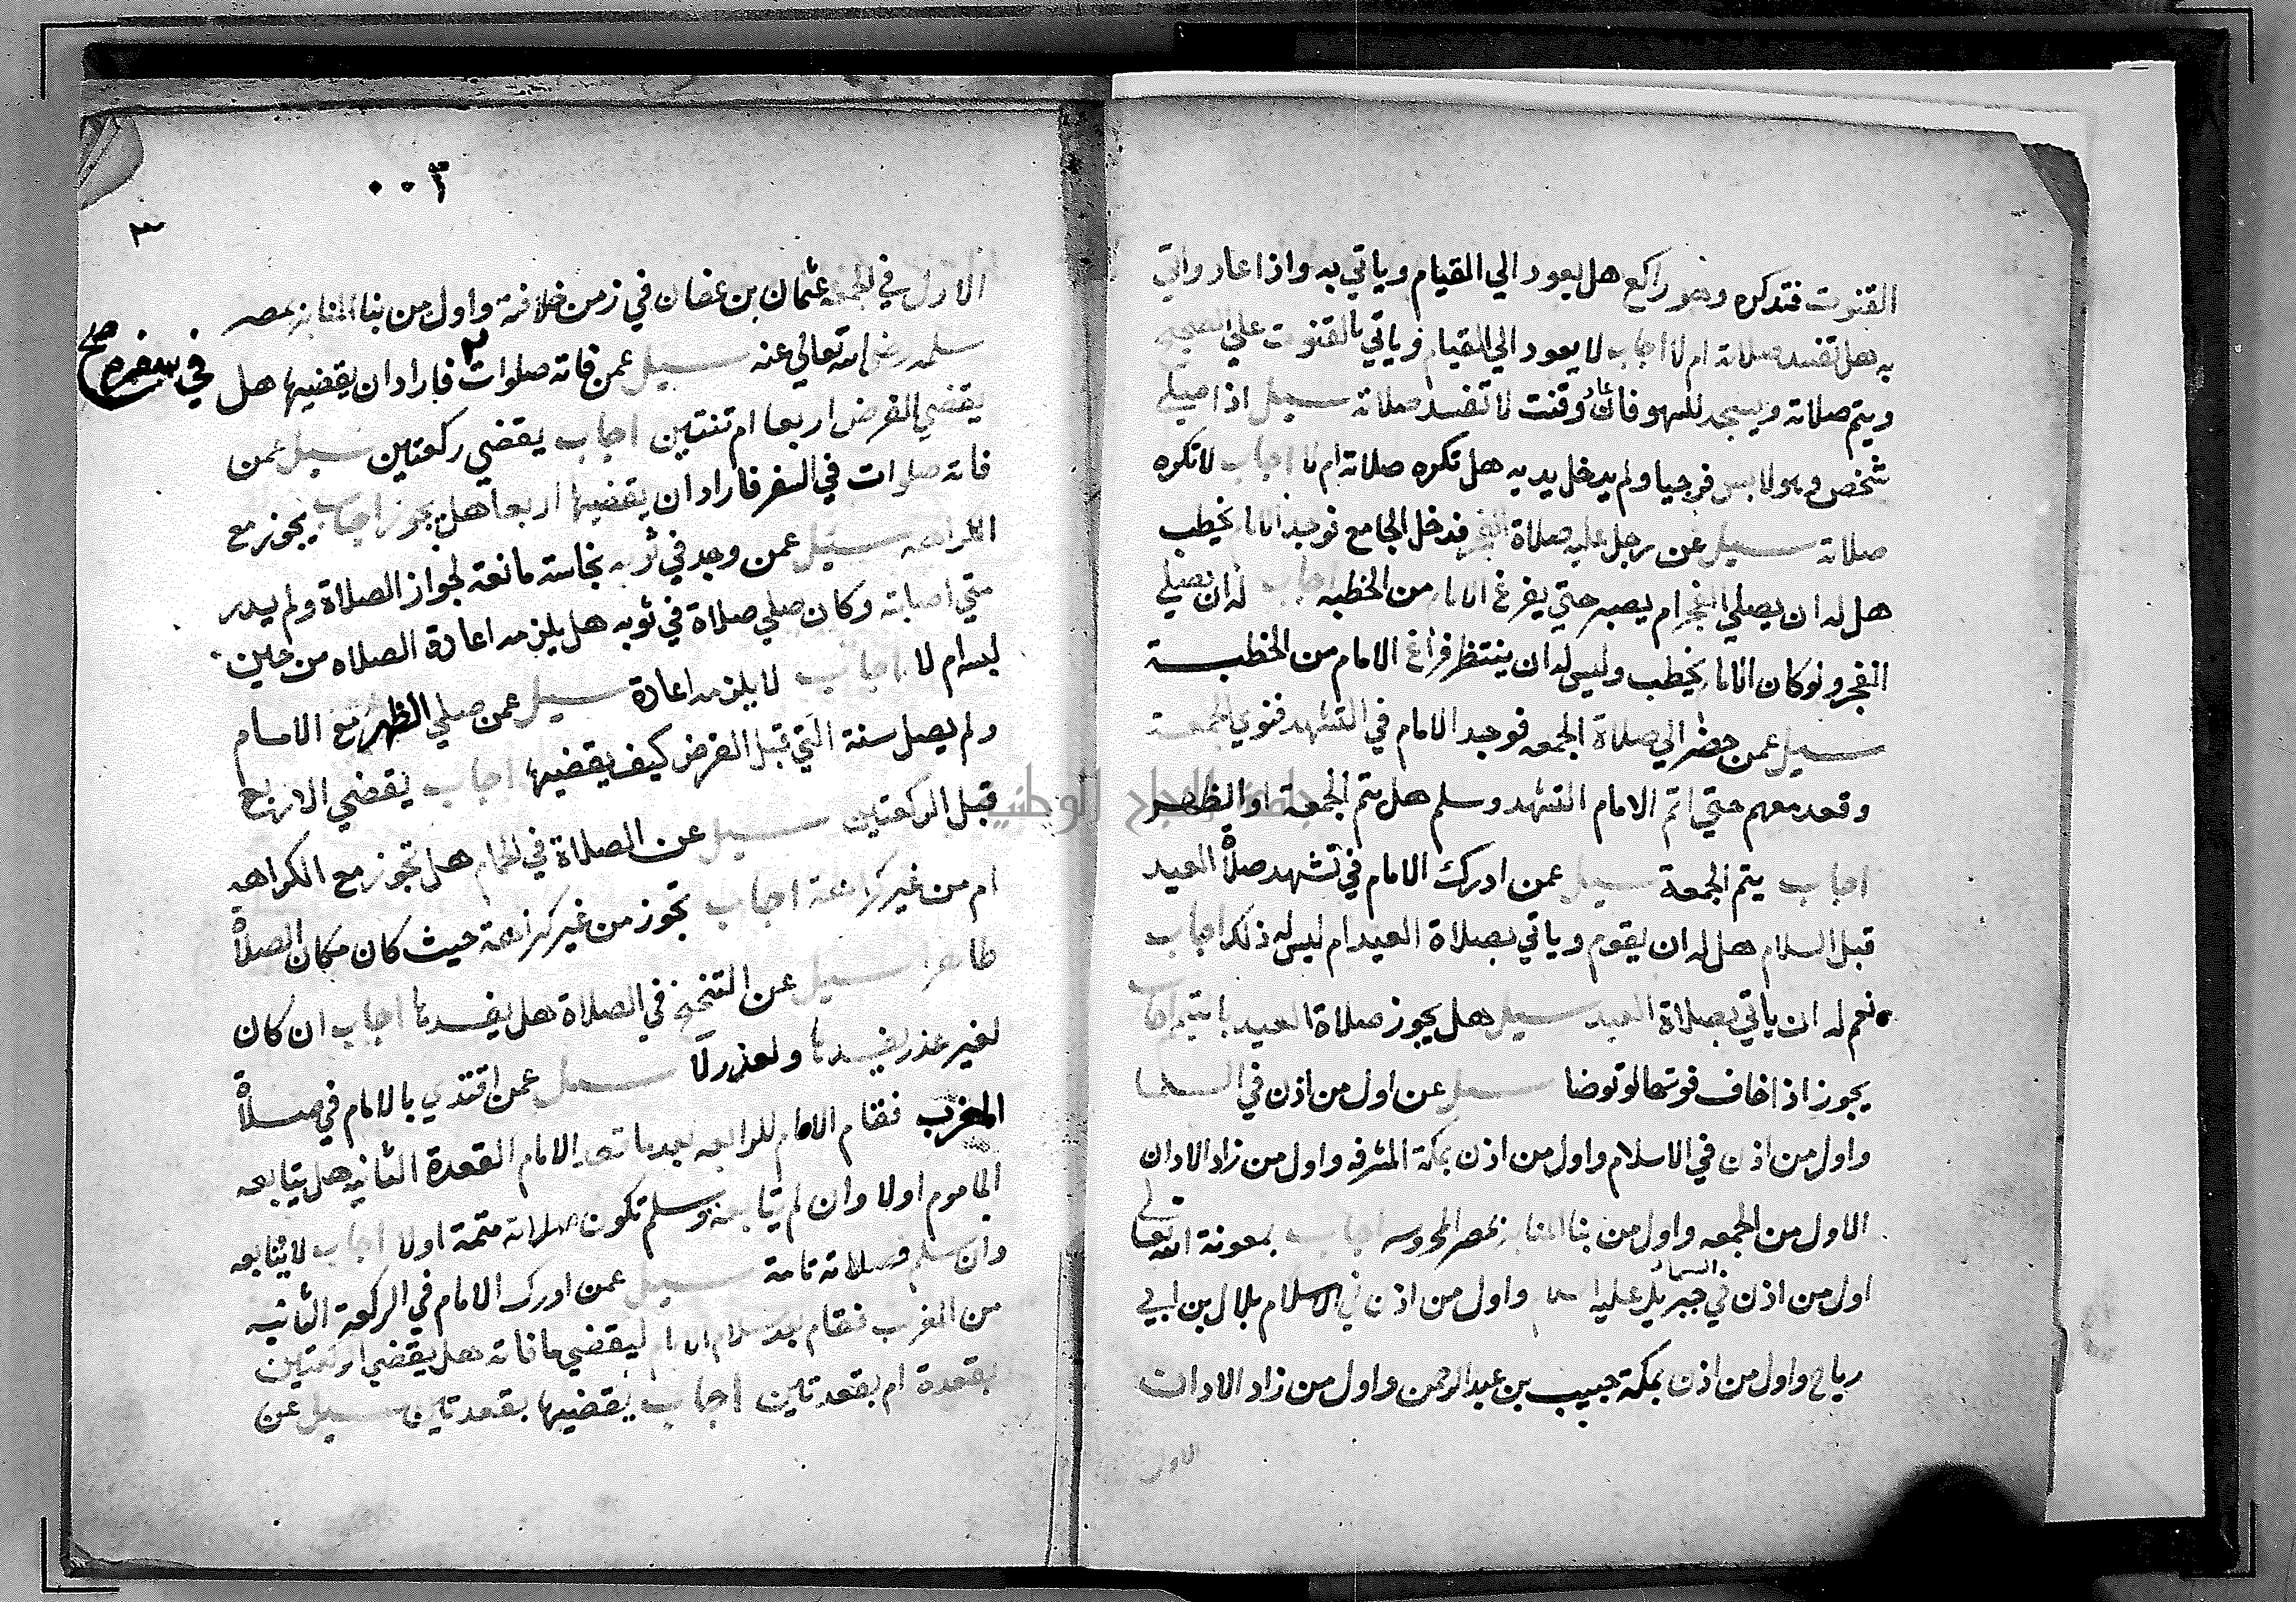 القنوت فتذكره وهو راكع هل يعود الي القيام وياتي به واذا عاد واتي
به هل تفسد صلاته ام لا اجاب لا يعود الي القيام وياتي بالقنوت علي الصحيح
ويتم صلاته ويسجد للسهو فان عاد وقنت لا تفسد صلاته سيل اذا صلي
شخص وهو لابس فرجيا ولم يدخل يديه هل تكره صلاته ام لا اجاب لا تكره
صلاته سيل عن رجل عليه صلاة الفجر فدخل الجامع فوجد الامام يخطب
هل له ان يصلي الفجر ام يصبر حتي يفرغ الامام من الخطبه اجاب له ان يصلي
الفجر ولو كان الامام يخطب وليس له ان ينتظر فراغ الامام من الخطبة
سيل عمن حضر الي صلاة الجمعه فوجد الامام في التشهد فنوي الجمعة
وقعد معهم حتي اتم الامام التشهد وسلم هل يتم الجمعة او الظهر
اجاب يتم الجمعة سيل عمن ادرك الامام في تشهد صلاة العيد
قبل السلام هل له ان يقوم وياتي بصلاة العيد ام ليس له ذلك اجاب
نعم له ان ياتي بصلاة العيد سيل هل يجوز صلاة العيد بالتيمم اجاب
يجوز اذا خاف فوتها لو توضا سيل عن اول من اذن في السما
واول من اذن في الاسلام واول من اذن بمكة المشرفه واول من زاد الادان
الاول من الجمعه واول من بنا المنابر بمصر المحروسه اجاب بمعونة الله تعالي
اول من اذن في السما جبريل عليه السلام واول من اذن في الاسلام بلال بن ابي
رباح واول من اذن بمكة حبيب بن عبد الرحمن واول من زاد الادان
الاول
٠٠٣
٣
الاول في الجمعه عثمان بن عفان في زمن خلافته واول من بنا المنابر بمصر
سلمه رضي الله تعالي عنه سيل عمن فاته صلوات فاراد ان يقضيها هل
في سفره صح
يقضي الفرض اربعا ام تنتين اجاب يقضي ركعتين سيل عمن
فاته صلوات في السفر فاراد ان يقضيها اربعا هل يجوز اجاب يجوز مع
الكراهه سيل عمن وجد في ثوبه نجاسة مانعة لجواز الصلاة ولم يدر
متي اصابته وكان صلي صلاة في ثوبه هل يلزمه اعادة الصلاه من حين
لبسه ام لا اجاب لا يلزمه اعادة سيل عمن صلي الظهر مع الامام
ولم يصل سنة التي قبل الفرض كيف يقضيها اجاب يقضي الاربع
قبل الركعتين سيل عن الصلاة في الحمام هل تجوز مع الكراهه
ام من غير كراهة اجاب تجوز من غير كراهة حيث كان مكان الصلاة
طاهرا سيل عن التنحنح في الصلاة هل يفسدها اجاب ان كان
لغير عذر يفسدها ولعذر لا سيل عمن اقتدي بالامام في صلاة
المغرب فقام الامام للرابعه بعد ما قعد الامام القعدة الثانيه هل يتابعه
الماموم اولا وان لم يتابعه وسلم تكون صلاته متمة اولا اجاب لا يتابعه
وان سلم فصلاته تامة سيل عمن ادرك الامام في الركعة الثانيه
من المغرب فقام بعد سلام الامام ليقضي ما فاته هل يقضي الركعتين
بقعدة ام بقعدتين اجاب يقضيها بقعدتين سيل عن